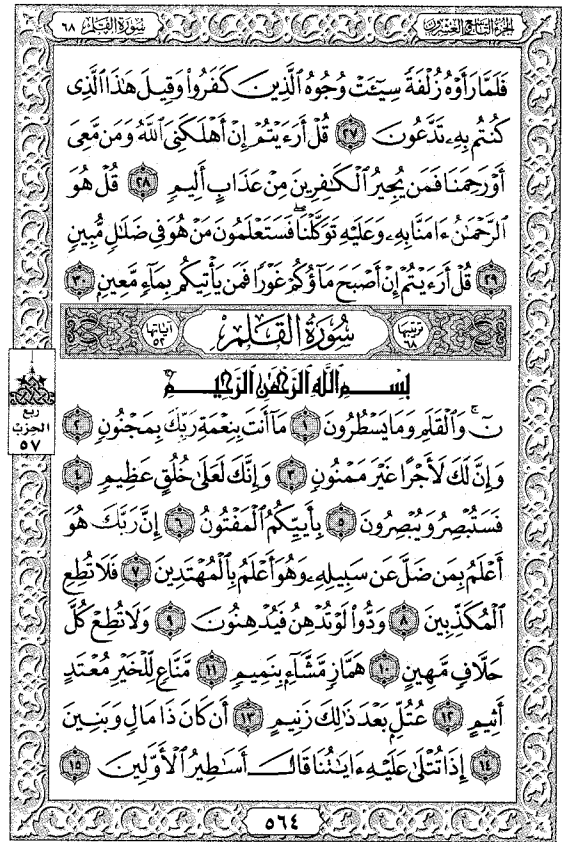 الجزء التاسع والعشرون
سورة القلم ٦٨
فَلَمَّا رَأَوْهُ زُلْفَةً سِيٓـَٔتْ وُجُوهُ ٱلَّذِينَ كَفَرُوا۟ وَقِيلَ هَٰذَا ٱلَّذِى
كُنتُم بِهِۦ تَدَّعُونَ ٢٧ قُلْ أَرَءَيْتُمْ إِنْ أَهْلَكَنِىَ ٱللَّهُ وَمَن مَّعِىَ
أَوْ رَحِمَنَا فَمَن يُجِيرُ ٱلْكَٰفِرِينَ مِنْ عَذَابٍ أَلِيمٍ ٢٨ قُلْ هُوَ
ٱلرَّحْمَٰنُ ءَامَنَّا بِهِۦ وَعَلَيْهِ تَوَكَّلْنَا ۖ فَسَتَعْلَمُونَ مَنْ هُوَ فِى ضَلَٰلٍ مُّبِينٍ
٢٩ قُلْ أَرَءَيْتُمْ إِنْ أَصْبَحَ مَآؤُكُمْ غَوْرًا فَمَن يَأْتِيكُم بِمَآءٍ مَّعِينٍۭ ٣٠
ترتيبها ٦٨ سُورَةُ القَلَمِ آياتها ٥٢
بِسْمِ ٱللَّهِ ٱلرَّحْمَٰنِ ٱلرَّحِيمِ
نٓ ۚ وَٱلْقَلَمِ وَمَا يَسْطُرُونَ ١ مَآ أَنتَ بِنِعْمَةِ رَبِّكَ بِمَجْنُونٍ ٢
وَإِنَّ لَكَ لَأَجْرًا غَيْرَ مَمْنُونٍ ٣ وَإِنَّكَ لَعَلَىٰ خُلُقٍ عَظِيمٍ ٤
فَسَتُبْصِرُ وَيُبْصِرُونَ ٥ بِأَييِّكُمُ ٱلْمَفْتُونُ ٦ إِنَّ رَبَّكَ هُوَ
أَعْلَمُ بِمَن ضَلَّ عَن سَبِيلِهِۦ وَهُوَ أَعْلَمُ بِٱلْمُهْتَدِينَ ٧ فَلَا تُطِعِ
ٱلْمُكَذِّبِينَ ٨ وَدُّوا۟ لَوْ تُدْهِنُ فَيُدْهِنُونَ ٩ وَلَا تُطِعْ كُلَّ
حَلَّافٍ مَّهِينٍ ١٠ هَمَّازٍ مَّشَّآءٍۭ بِنَمِيمٍ ١١ مَّنَّاعٍ لِّلْخَيْرِ مُعْتَدٍ
أَثِيمٍ ١٢ عُتُلٍّۭ بَعْدَ ذَٰلِكَ زَنِيمٍ ١٣ أَن كَانَ ذَا مَالٍ وَبَنِينَ
١٤ إِذَا تُتْلَىٰ عَلَيْهِ ءَايَٰتُنَا قَالَ أَسَٰطِيرُ ٱلْأَوَّلِينَ ١٥
ربع
الحزب
٥٧
٥٦٤